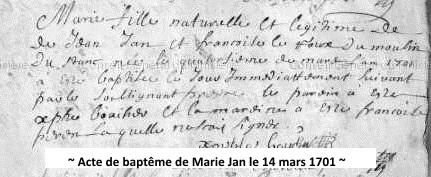 Marie fille naturelle et legitime de
de Jean Jan et francoise le roux du moulin
du franc nee le quatorsieme de mars l'an 1701
a este baptisee le jour immediattement suivant
par le soussignant le parein a este
et la mareine a este francoise
laquelle
~ Acte de baptême de Marie Jan le 14 mars 1701 ~